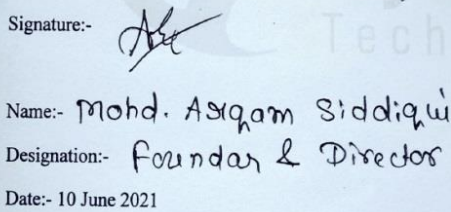 Tech
Signature:-
Name:- Mohd. Arqam Siddiqui
Designation:- Foundar & Director
Date:- 10 June 2021